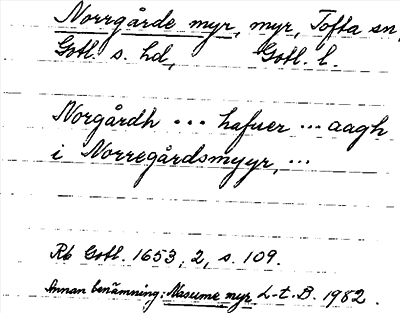 Norrgårde myr, myr, Tofta sn,
Gotl. s. hd, Gotl. l.
Norgårdh ... hafuer ... aagh
i Norregårdsmyyr, ...
Rb Gotl. 1653, 2, s. 109.
Annan benämning: Masume myr L-t. B. 1982.